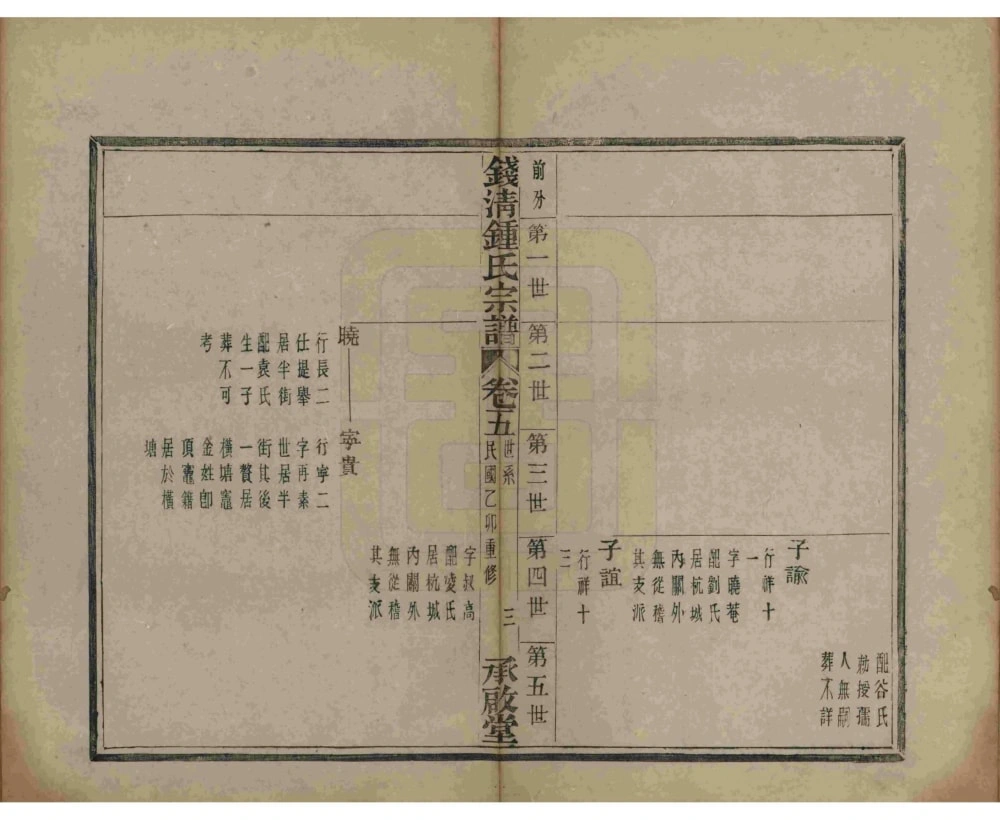 配谷氏
勅授孺
人無嗣
葬不詳
子諭
行祥十
一
字曉菴
配劉氏
居杭城
內關外
無從稽
其支派
子誼
行祥十
三
前分
第一世
第二世
第三世
第四世
第五世
錢清鍾氏宗譜
卷之五
世系
民國乙卯重修
三
承啟堂
字叔高
配凌氏
居杭城
內關外
無從稽
其支派
曉
寧貴
行長二
仕提舉
居半街
配袁氏
生一子
葬不可
考
行寧二
字再素
世居半
街其後
一贅居
橫塘竈
金姓卽
頂竈籍
居於橫
塘